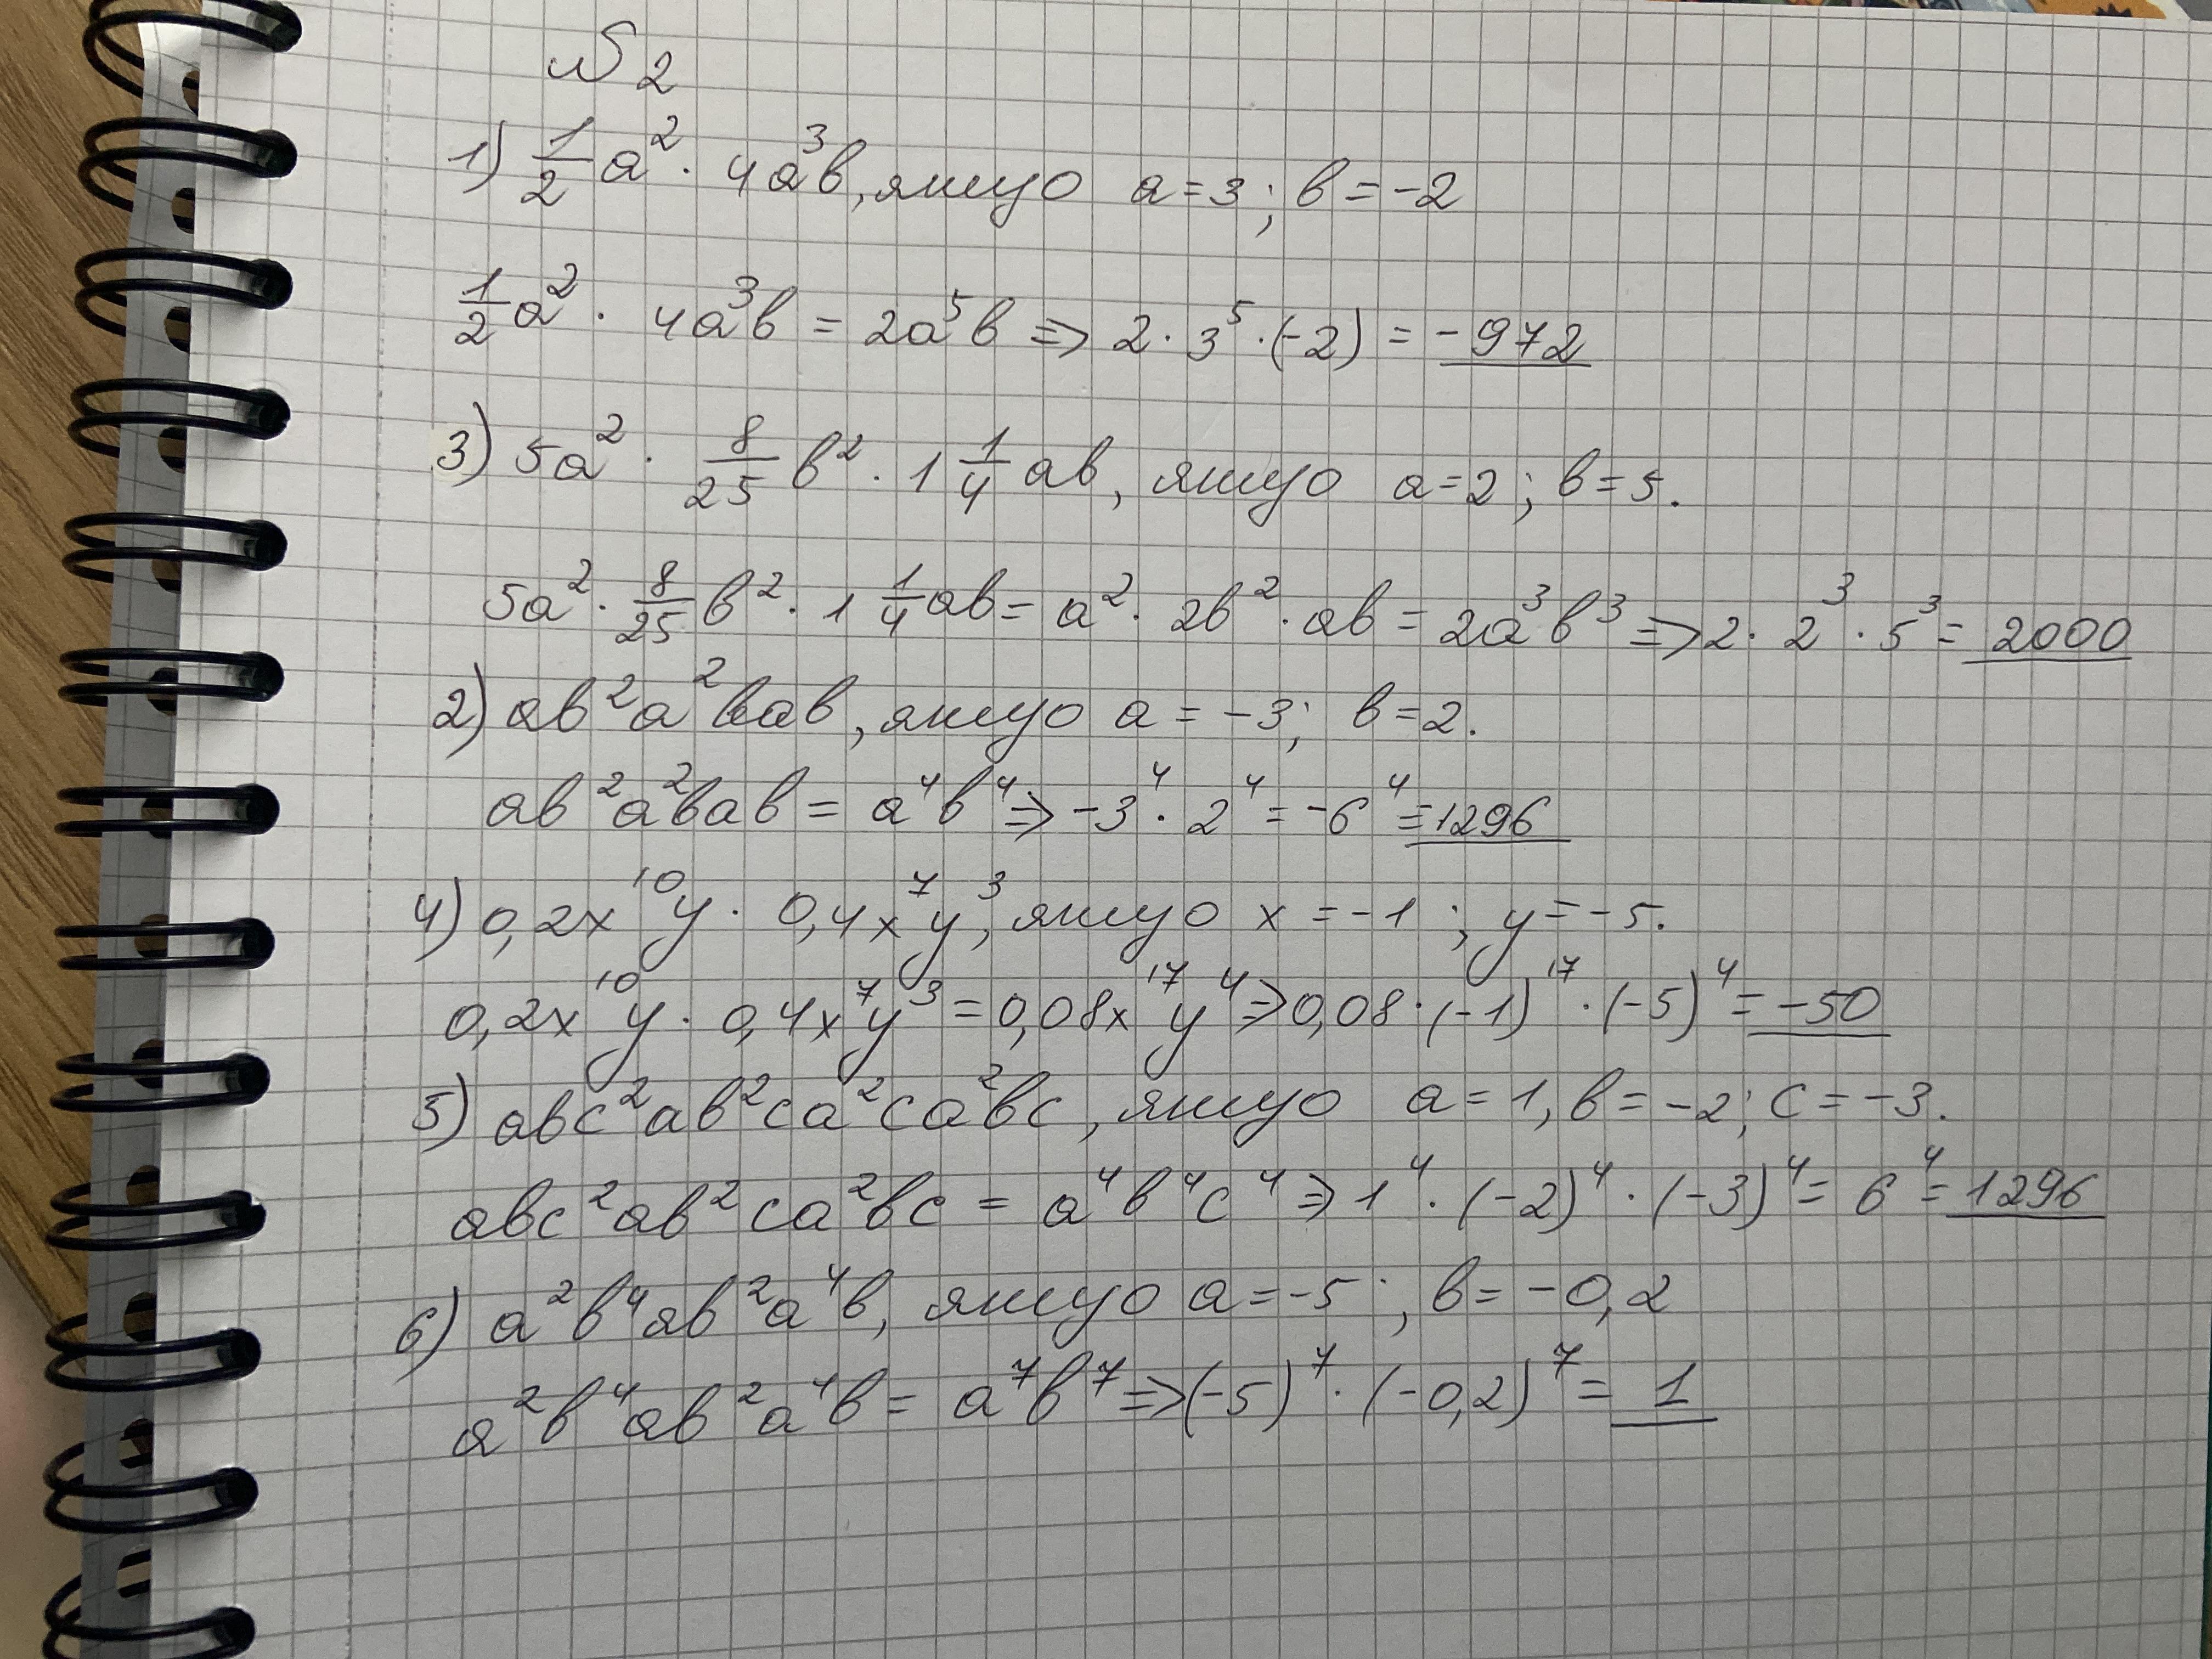 № 2
1) 1/2 a² · 4a³b, якщо a = 3; b = -2
1/2 a² · 4a³b = 2a⁵b => 2 · 3⁵ · (-2) = -972
3) 5a² · 8/25 b² · 1 1/4 ab, якщо a = 2; b = 5.
5a² · 8/25 b² · 1 1/4 ab = a² · 2b² · ab = 2a³b³ => 2 · 2³ · 5³ = 2000
2) ab²a²bab, якщо a = -3; b = 2.
ab²a²bab = a⁴b⁴ => -3⁴ · 2⁴ = -6⁴ = 1296
4) 0,2x¹⁰y · 0,4x⁷y³, якщо x = -1; y = -5.
0,2x¹⁰y · 0,4x⁷y³ = 0,08x¹⁷y⁴ => 0,08 · (-1)¹⁷ · (-5)⁴ = -50
5) abc²ab²ca²ca²bc, якщо a = 1, b = -2; c = -3.
abc²ab²ca²bc = a⁴b⁴c⁴ => 1⁴ · (-2)⁴ · (-3)⁴ = 6⁴ = 1296
6) a²b⁴ab²a⁴b, якщо a = -5; b = -0,2
a²b⁴ab²a⁴b = a⁷b⁷ => (-5)⁷ · (-0,2)⁷ = 1